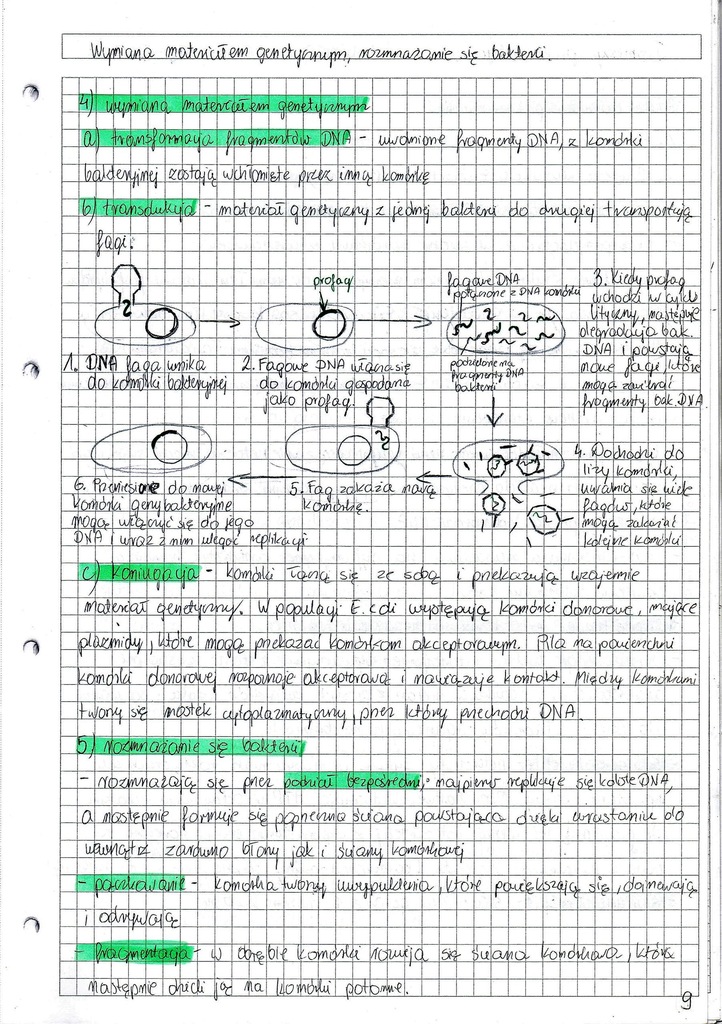 Wymiana materiałem genetycznym, rozmnażanie się bakterii.
4) wymiana materiałem genetycznym
a) transformacja fragmentów DNA - uwolnione fragmenty DNA, z komórki
bakteryjnej zostają wchłonięte przez inną komórkę
b) transdukcja - materiał genetyczny z jednej bakterii do drugiej transportują
fagi:
profag
fagowe DNA
połączone z DNA komórki
podzielone na
fragmenty DNA
bakterii
3. Kiedy profag
wchodzi w cykl
lityczny, następuje
degradacja bak.
DNA i powstają
nowe fagi, które
mogą zawierać
fragmenty bak. DNA
1. DNA faga wnika
do komórki bakteryjnej
2. Fagowe DNA włącza się
do komórki gospodarza
jako profag.
4. Dochodzi do
lizy komórki,
uwalnia się wiele
fagów, które
mogą zakażać
kolejne komórki
5. Fag zakaża nową
komórkę.
6. Przeniesione do nowej
komórki geny bakteryjne
mogą włączyć się do jego
DNA i wraz z nim ulegać replikacji
c) koniugacja - komórki łączą się ze sobą i przekazują wzajemnie
materiał genetyczny. W populacji E. coli występują komórki donorowe, mające
plazmidy, które mogą przekazać komórkom akceptorowym. Pila na powierzchni
komórki donorowej rozpoznaje akceptorową i nawiązuje kontakt. Między komórkami
tworzy się mostek cytoplazmatyczny, przez który przechodzi DNA.
5) rozmnażanie się bakterii
- rozmnażają się przez podział bezpośredni; najpierw replikuje się koliste DNA,
a następnie formuje się poprzeczna ściana powstająca dzięki wrastaniu do
wewnątrz zarówno błony jak i ściany komórkowej
- pączkowanie - komórka tworzy uwypuklenia, które powiększają się, dojrzewają
i odrywają
- fragmentacja - w obrębie komórki rozwija się ściana komórkowa, która
następnie dzieli ją na komórki potomne.
9